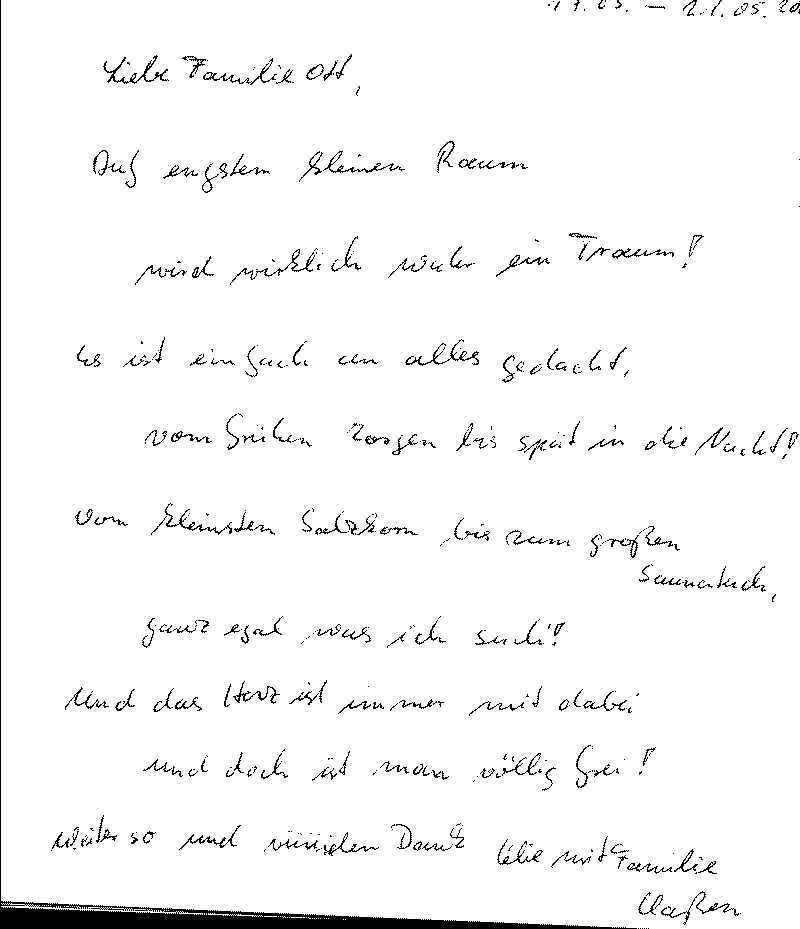 17.05. – 21.05.20
Liebe Familie Ott,
Auf engstem kleinen Raum
wird wirklich wahr ein Traum!
Es ist einfach an alles gedacht,
vom frühen Morgen bis spät in die Nacht!
Vom kleinsten Salzkorn bis zum großen
Saunatuch,
ganz egal was ich such'!
Und das Herz ist immer mit dabei
und doch ist man völlig frei!
Weiter so und viiiielen Dank mit Familie
Claßen